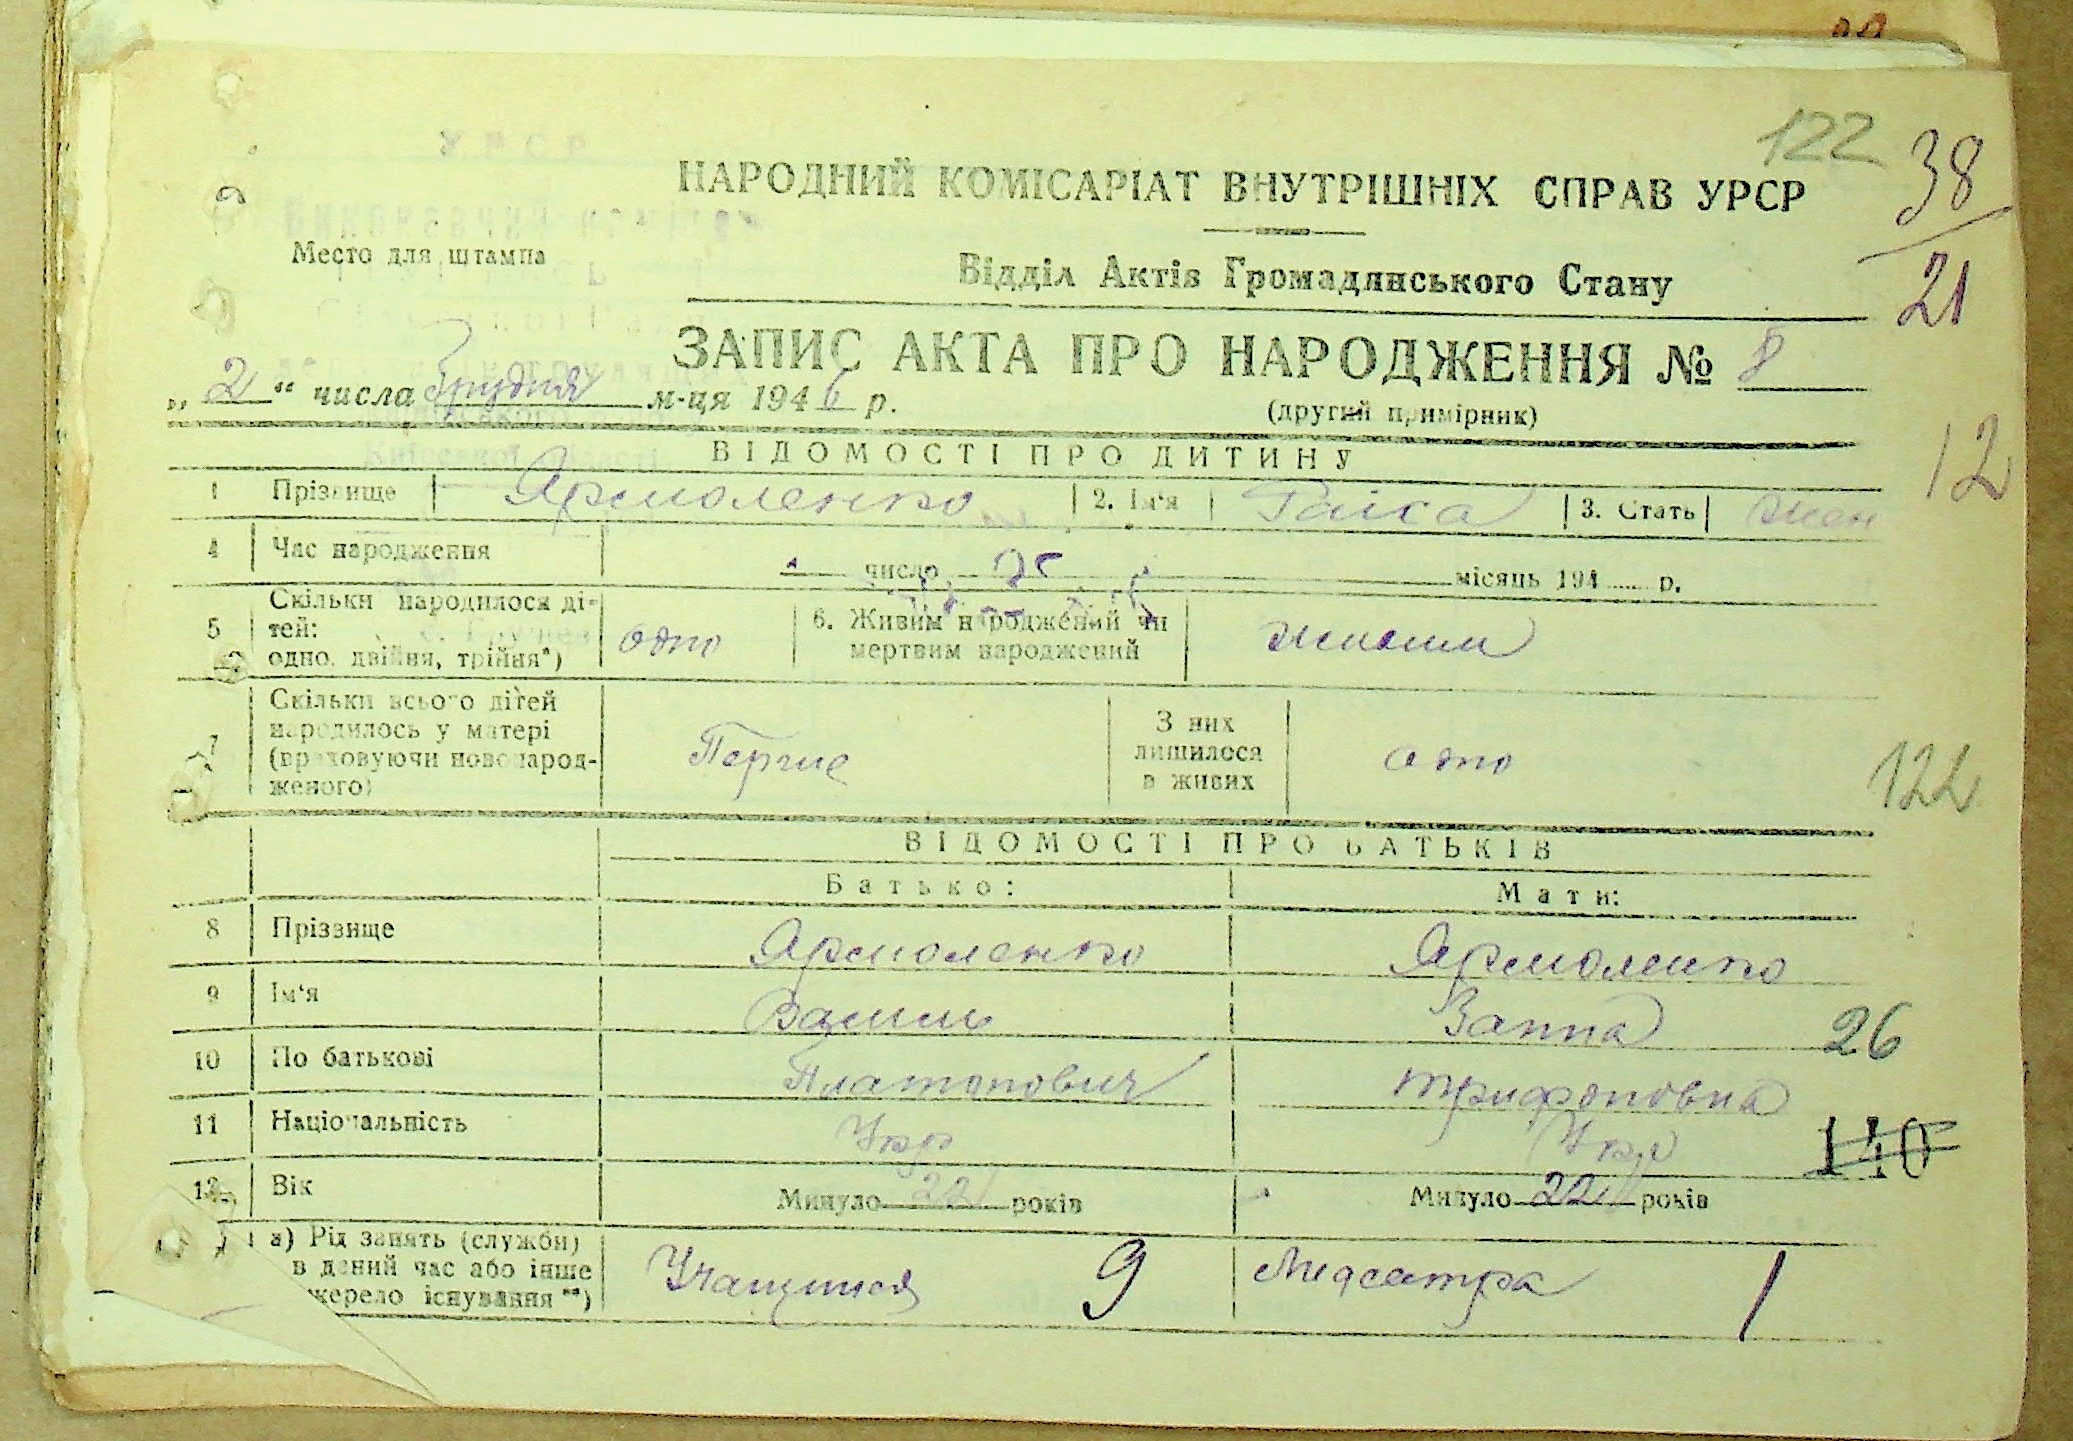 122
38
НАРОДНИЙ КОМІСАРІАТ ВНУТРІШНІХ СПРАВ УРСР
Место для штампа
Відділ Актів Громадянського Стану
21
ЗАПИС АКТА ПРО НАРОДЖЕННЯ № 8
„ 2 “ числа Грудня м-ця 1946 р.
(другий примірник)
12
ВІДОМОСТІ ПРО ДИТИНУ
1 Прізвище Ярмоленко 2. Ім'я Раіса 3. Стать жен
4 Час народження число 25 місяць 194 р.
5 Скільки народилося ді-
тей:
одно, двійня, трійня*) одно 6. Живим народжений чи
мертвим народжений живим
7 Скільки всього дітей
народилось у матері
(враховуючи новонарод-
женого) Перше З них
лишилося
в живих одно
122
ВІДОМОСТІ ПРО БАТЬКІВ
Батько: Мати:
8 Прізвище Ярмоленко Ярмоленко
9 Ім'я Василь Ганна 26
10 По батькові Платонович Трифоновна
11 Національність Укр Укр 140
12 Вік Минуло 22 років Минуло 22 років
а) Рід занять (служби)
в даний час або інше
жерело існування **) Учащийся 9 Медсестра 1